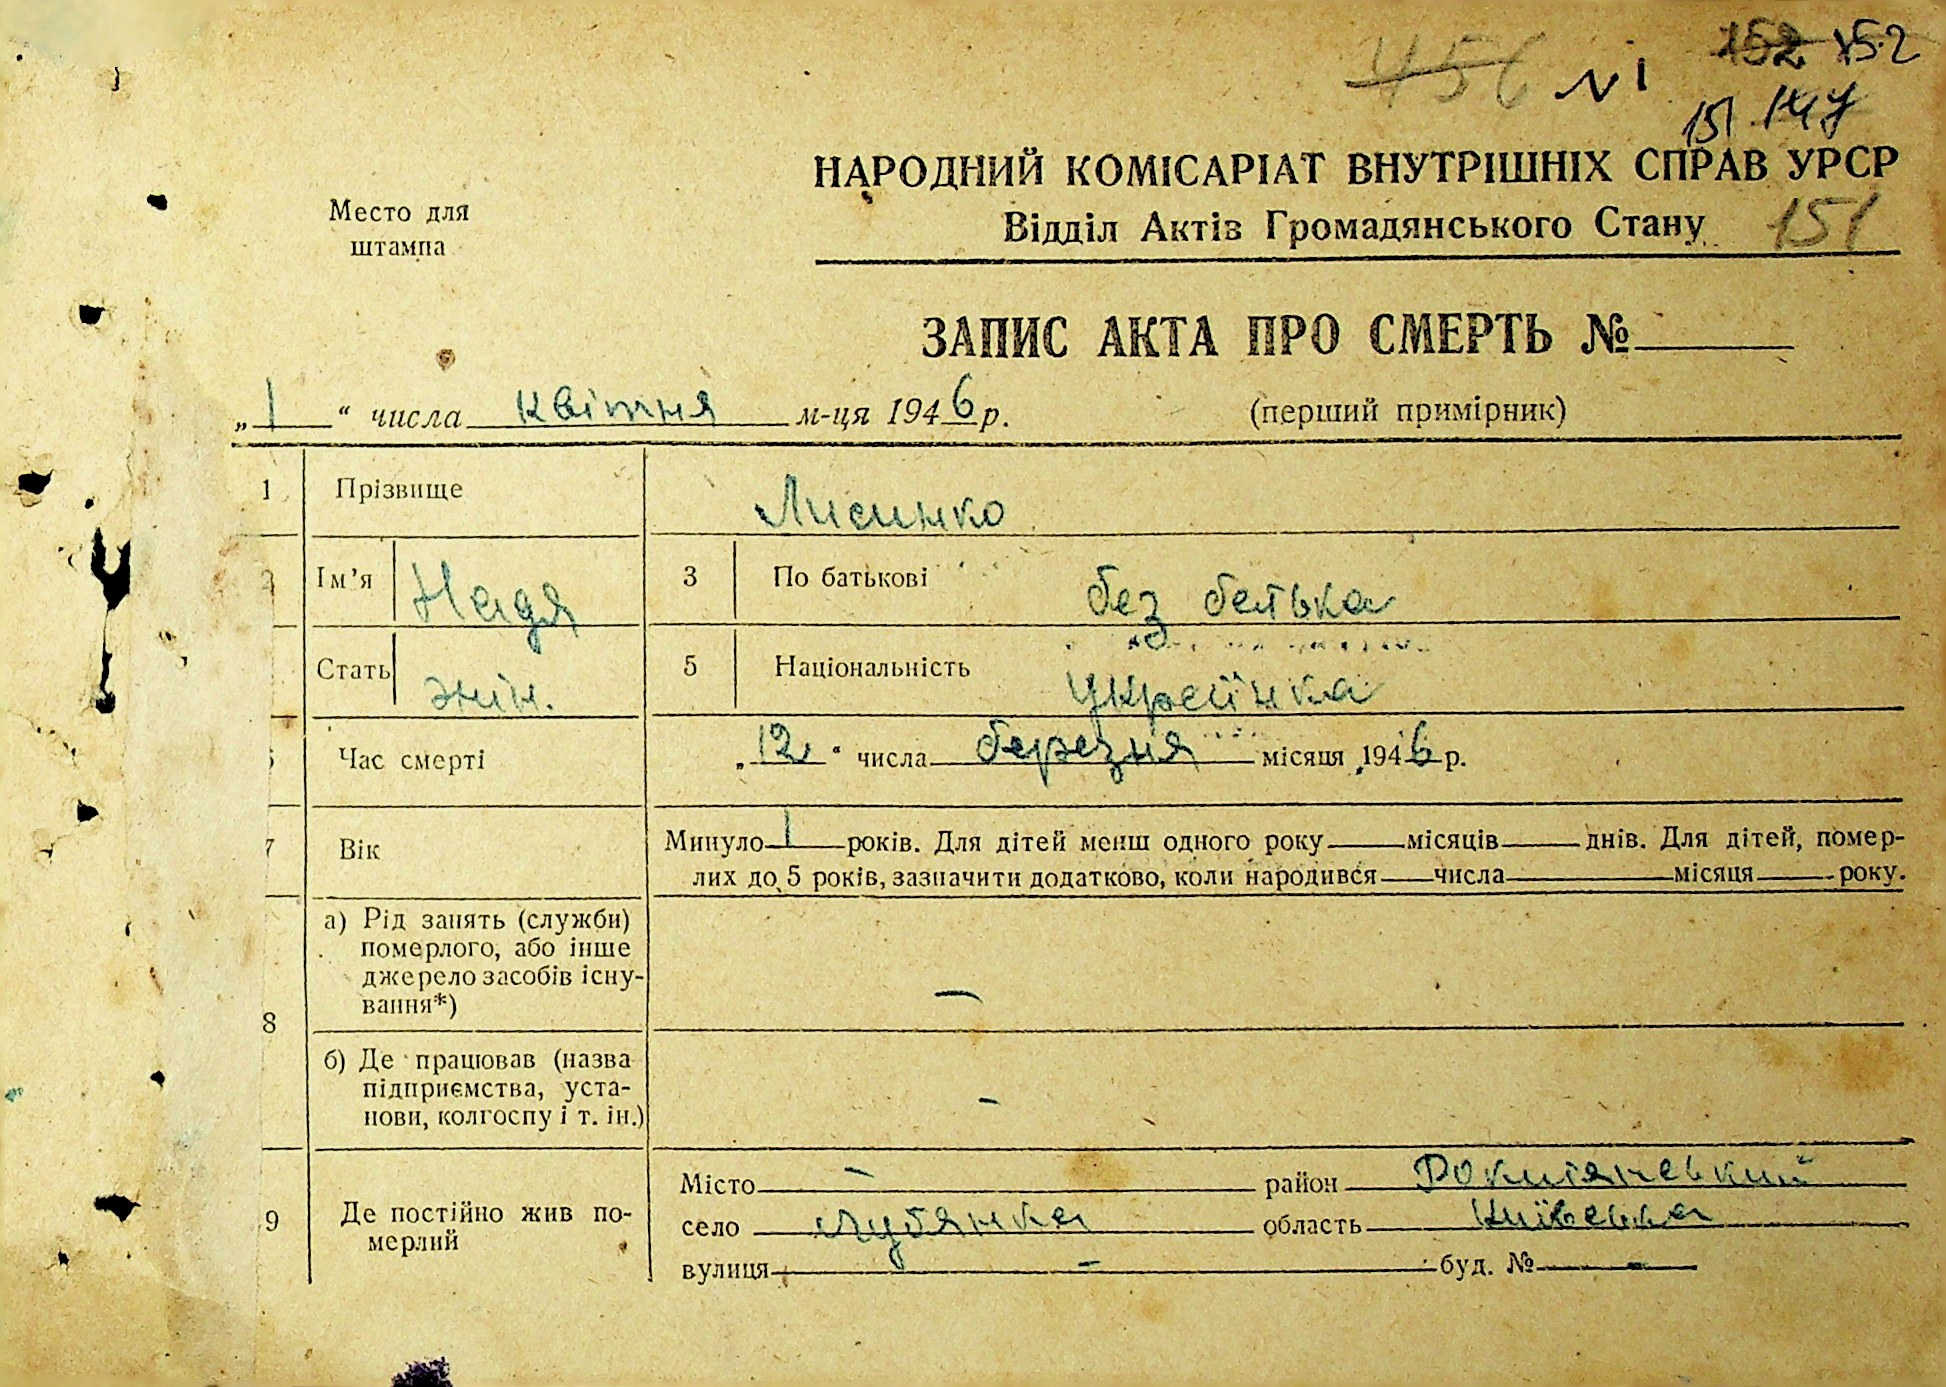 456 N 1 152 152
151 144
НАРОДНИЙ КОМІСАРІАТ ВНУТРІШНІХ СПРАВ УРСР
Место для
штампа
Відділ Актів Громадянського Стану 151
ЗАПИС АКТА ПРО СМЕРТЬ №
„1“ числа квітня м-ця 1946 р. (перший примірник)
1 Прізвище Лисинко
2 Ім'я Надя 3 По батькові без батька
Стать жін. 5 Національність Українка
Час смерті „12“ числа березня місяця 1946 р.
7 Вік Минуло 1 років. Для дітей менш одного року місяців днів. Для дітей, помер-
лих до 5 років, зазначити додатково, коли народився числа місяця року.
8 а) Рід занять (служби)
померлого, або інше
джерело засобів існу-
вання*) —
б) Де працював (назва
підприємства, уста-
нови, колгоспу і т. ін.) -
9 Де постійно жив по-
мерлий
Місто — район Рокитянський
село Лубянка область Київська
вулиця - буд. № -